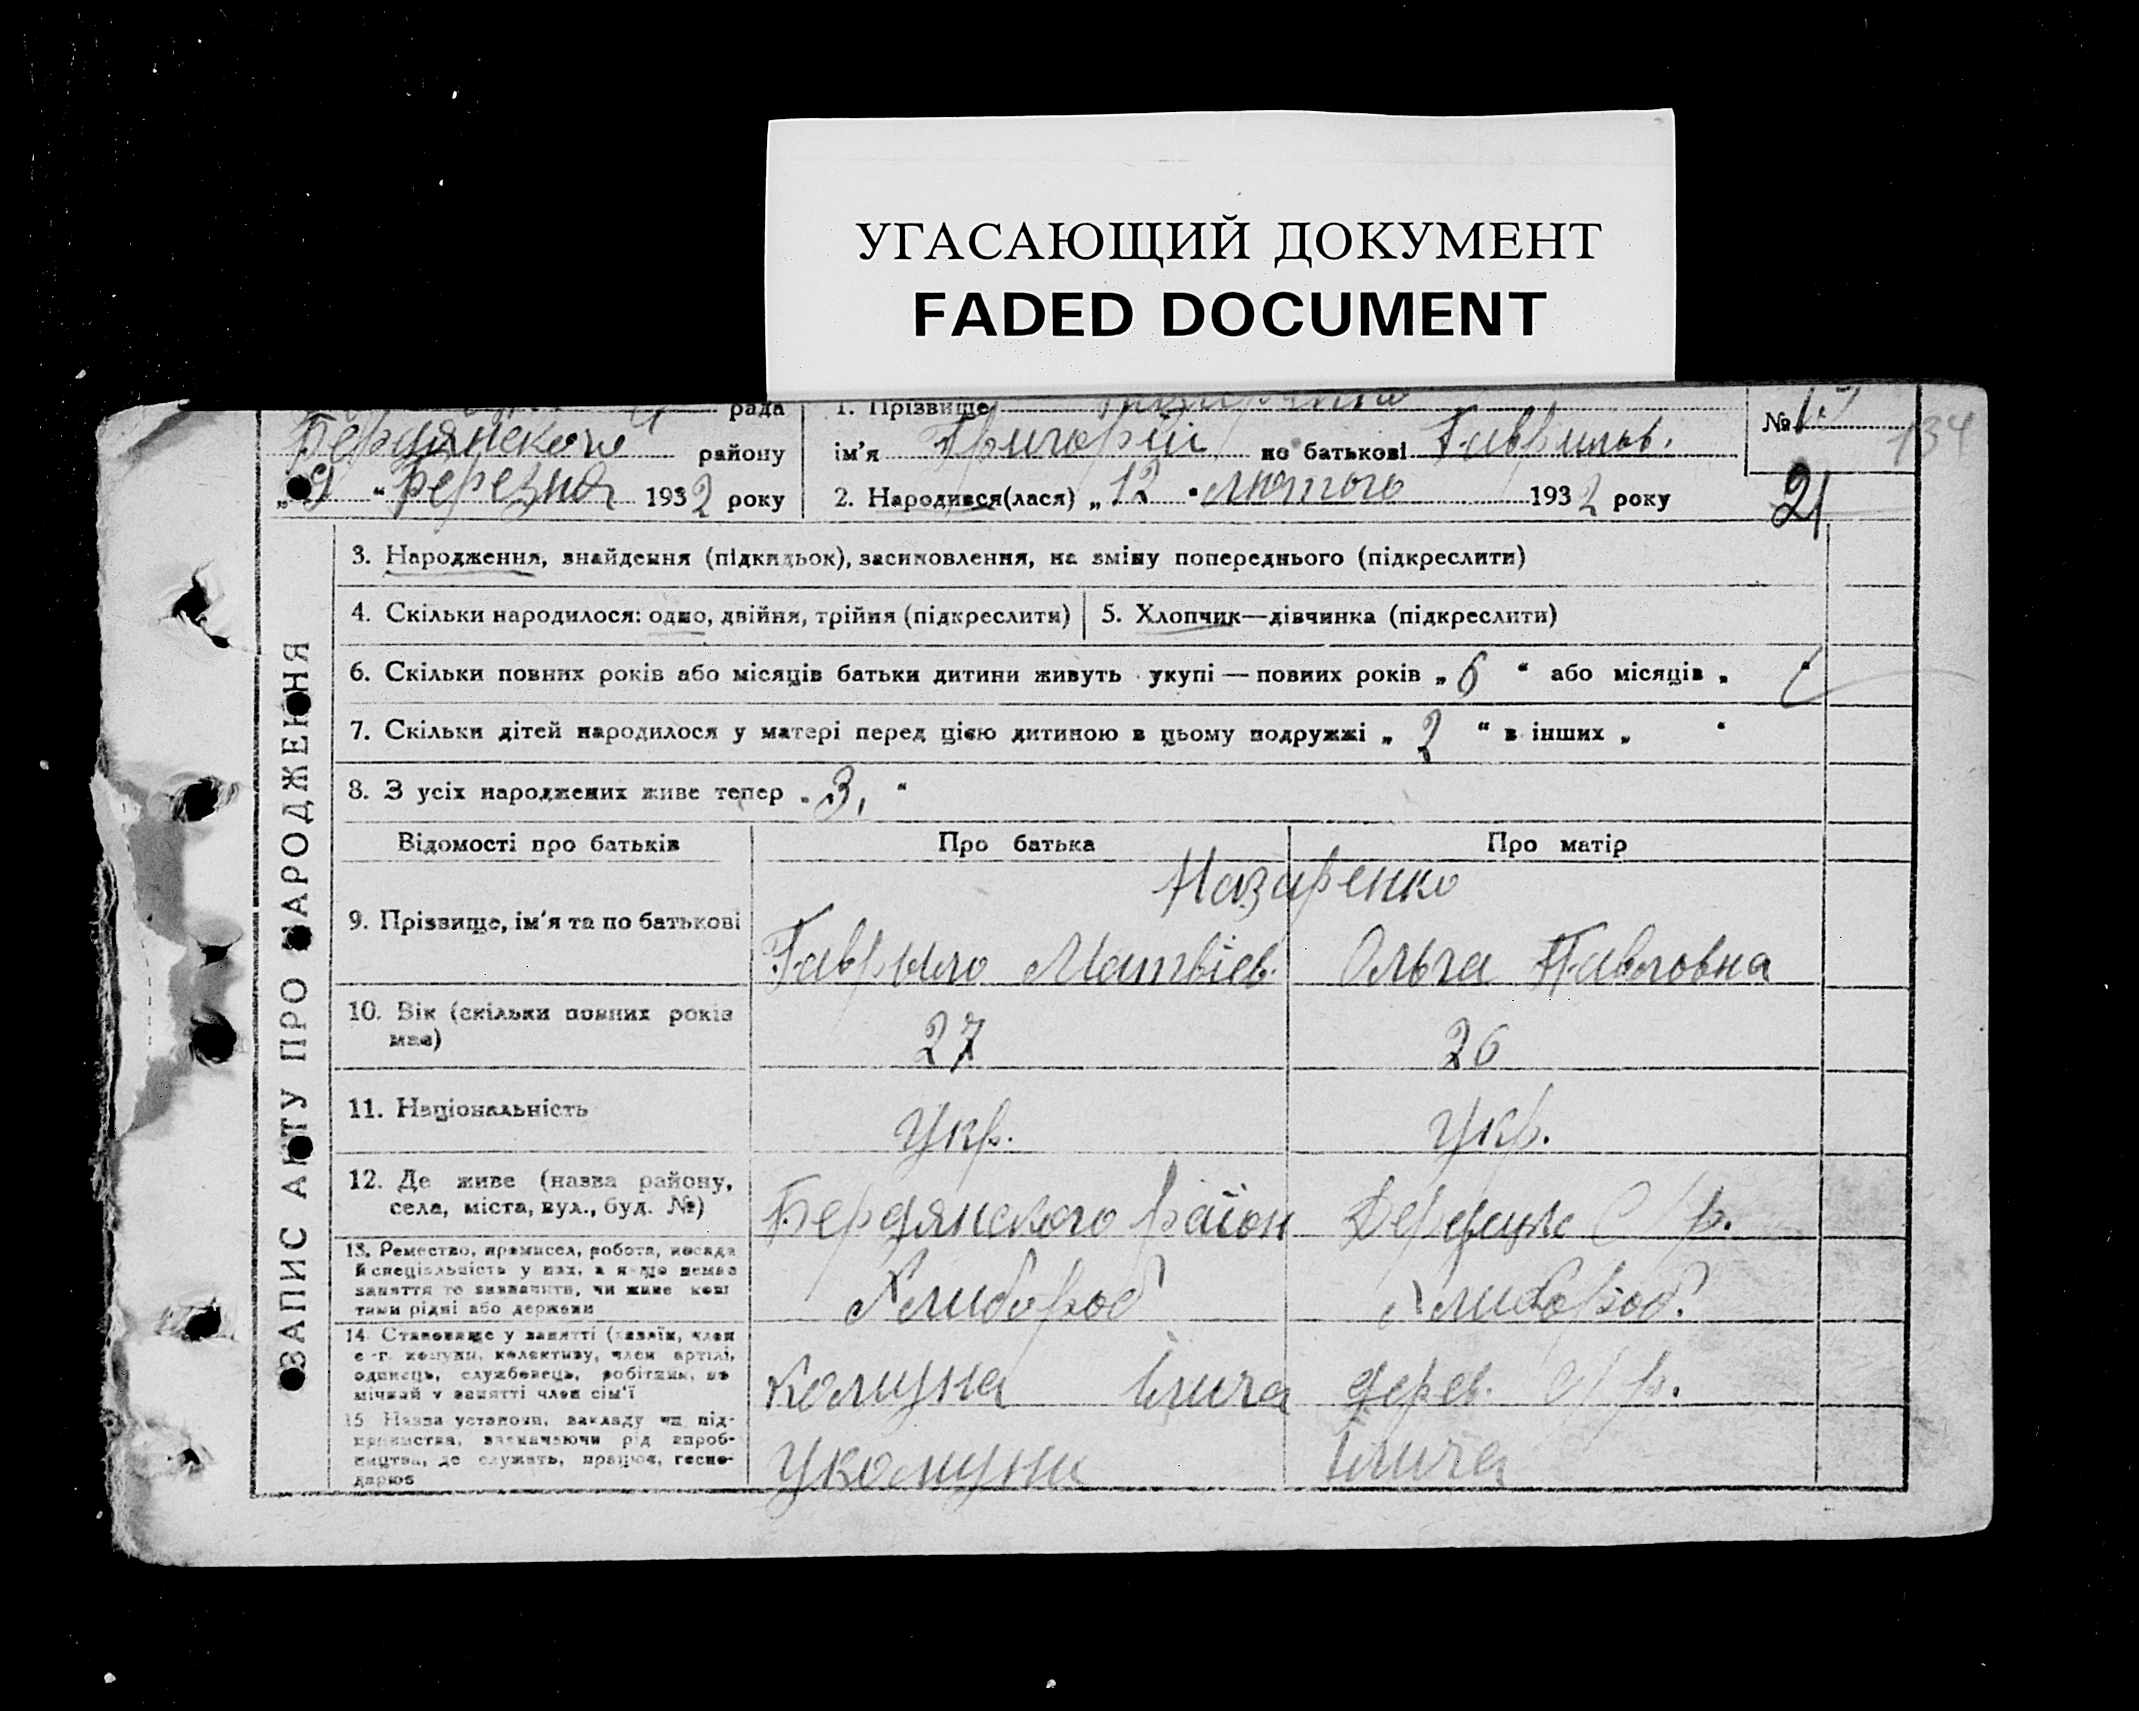 УГАСАЮЩИЙ ДОКУМЕНТ
FADED DOCUMENT
рада
1. Прізвище
№
Бердянского району
ім'я Григорій по батькові Гаврилов.
134
„9“ березня 1932 року
2. Народився(лася) „12“ лютого 1932 року
21
ЗАПИС АКТУ ПРО НАРОДЖЕННЯ
3. Народження, знайдення (підкидьок), засиновлення, на зміну попереднього (підкреслити)
4. Скільки народилося: одно, двійня, трійня (підкреслити)
5. Хлопчик—дівчинка (підкреслити)
6. Скільки повних років або місяців батьки дитини живуть укупі — повних років „6“ або місяців „
7. Скільки дітей народилося у матері перед цією дитиною в цьому подружжі „2“ в інших „ “
8. З усіх народжених живе тепер „3,“
Відомості про батьків
Про батька
Про матір
Назаренко
9. Прізвище, ім'я та по батькові
Гаврило Матвіев.
Ольга Павловна
10. Вік (скільки повних років має)
27
26
11. Національність
Укр.
Укр.
12. Де живе (назва району,
села, міста, вул., буд. №)
Бердянского район
С/р.
13. Ремество, промисел, робота, посада
й спеціальність у них, а якщо немає
заняття то зазначити, чи живе кош
тами рідні або держави
Хлибороб
Хлибороб.
14. Становище у занятті (хазяїн, член
с.-г. комуни, колективу, член артілі,
одинець, службовець, робітник, по
мічний у занятті член сім'ї
Комуна Ілича
дерев. с/р.
15. Назва установи, закладу чи під-
приємства, зазначаючи рід вироб-
ництва, де служить, працює, госпо-
дарює
Укомуни
Ілича